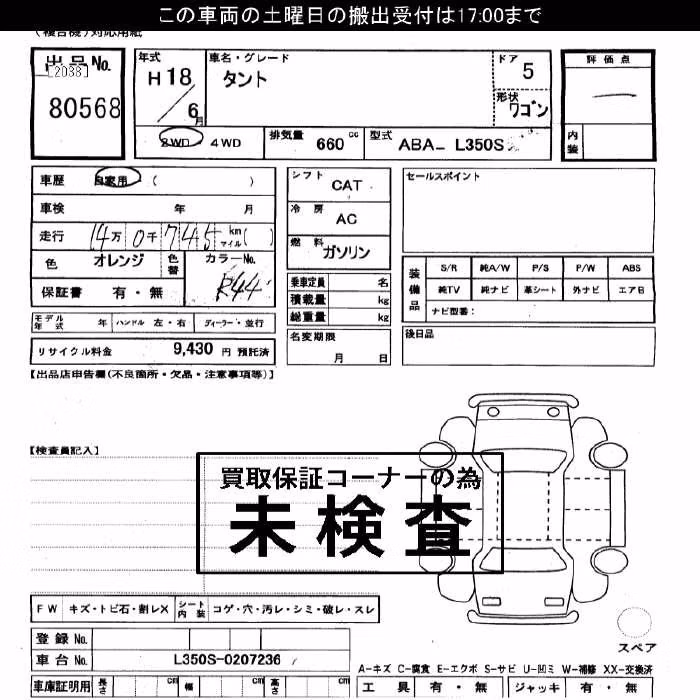 この車両の土曜日の搬出受付は17:00まで
(複合機)対応用紙
出品No.
[2038]
80568
年式
H18
6月
車名・グレード
タント
ドア
5
形状
ワゴン
評価点
内装
2WD ・ 4WD
排気量 660 cc
型式 ABA- L350S
車歴 自家用 ( )
車検 年 月
走行 14万 0千 745 km マイル ( )
色 オレンジ
色替
カラーNo.
R44
保証書 有・無
モデル年式 年 ハンドル 左・右 ディーラー・並行
リサイクル料金 9,430 円 預託済
シフト
CAT
冷房
AC
燃料
ガソリン
乗車定員 名
積載量 kg
総重量 kg
名変期限
月 日
セールスポイント
装備品
S/R 純A/W P/S P/W ABS
純TV 純ナビ 革シート 外ナビ エアB
ナビ型番:
後日品
【出品店申告欄(不良箇所・欠品・注意事項等)】
【検査員記入】
買取保証コーナーの為
未検査
FW キズ・トビ石・割レX シート内装 コゲ・穴・汚レ・シミ・破レ・スレ
登録No.
車台No. L350S-0207236
車庫証明用 長さ cm 幅 cm 高さ cm
スペア
A-キズ C-腐食 E-エクボ S-サビ U-凹ミ W-補修 XX-交換済
工具 有・無 ジャッキ 有・無